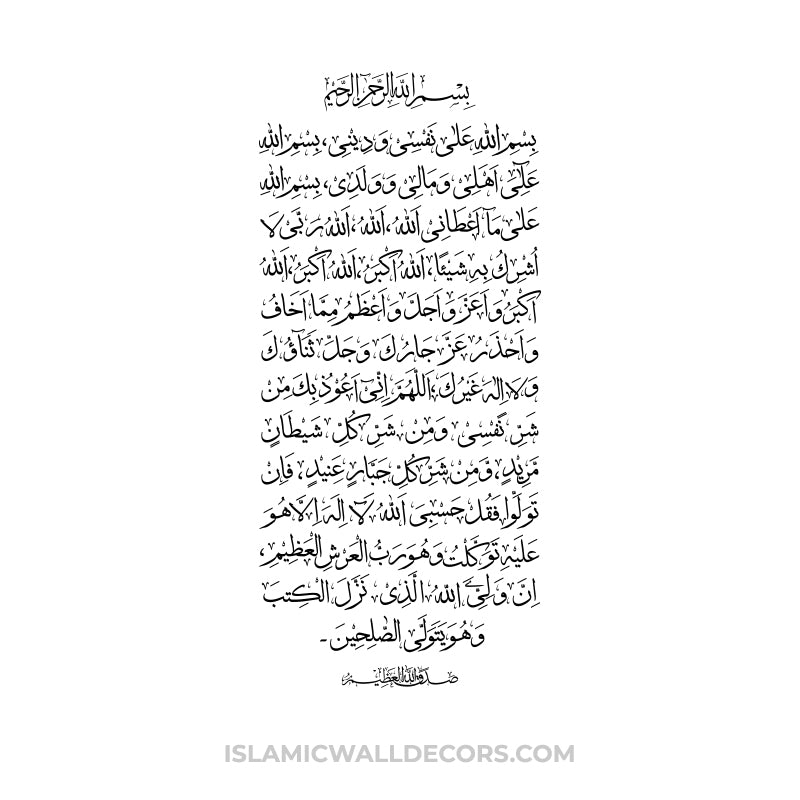 بِسْمِ اللهِ الرَّحْمٰنِ الرَّحِيْمِ
بِسْمِ اللهِ عَلٰى نَفْسِىْ وَدِيْنِىْ، بِسْمِ اللهِ
عَلٰٓى اَهْلِىْ وَمَالِىْ وَوَلَدِىْ، بِسْمِ اللهِ
عَلٰى مَآ اَعْطَانِىَ اللهُ، اَللهُ، اَللهُ رَبِّىْ لَا
اُشْرِكُ بِهٖ شَيْئًا، اَللهُ اَكْبَرُ، اَللهُ اَكْبَرُ، اَللهُ
اَكْبَرُ وَاَعَزُّ وَاَجَلُّ وَاَعْظَمُ مِمَّا اَخَافُ
وَاَحْذَرُ عَزَّ جَارُكَ وَجَلَّ ثَنَآؤُكَ
وَلَا اِلٰهَ غَيْرُكَ، اَللّٰهُمَّ اِنِّىْٓ اَعُوْذُ بِكَ مِنْ
شَرِّ نَفْسِىْ وَمِنْ شَرِّ كُلِّ شَيْطَانٍ
مَّرِيْدٍ، وَّمِنْ شَرِّ كُلِّ جَبَّارٍ عَنِيْدٍ، فَاِنْ
تَوَلَّوْا فَقُلْ حَسْبِىَ اللهُ لَآ اِلٰهَ اِلَّا هُوَ
عَلَيْهِ تَوَكَّلْتُ وَهُوَ رَبُّ الْعَرْشِ الْعَظِيْمِ،
اِنَّ وَلِىِّۦَ اللهُ الَّذِىْ نَزَّلَ الْكِتٰبَ
وَهُوَ يَتَوَلَّى الصّٰلِحِيْنَ۔
صدق الله العظيم
ISLAMICWALLDECORS.COM